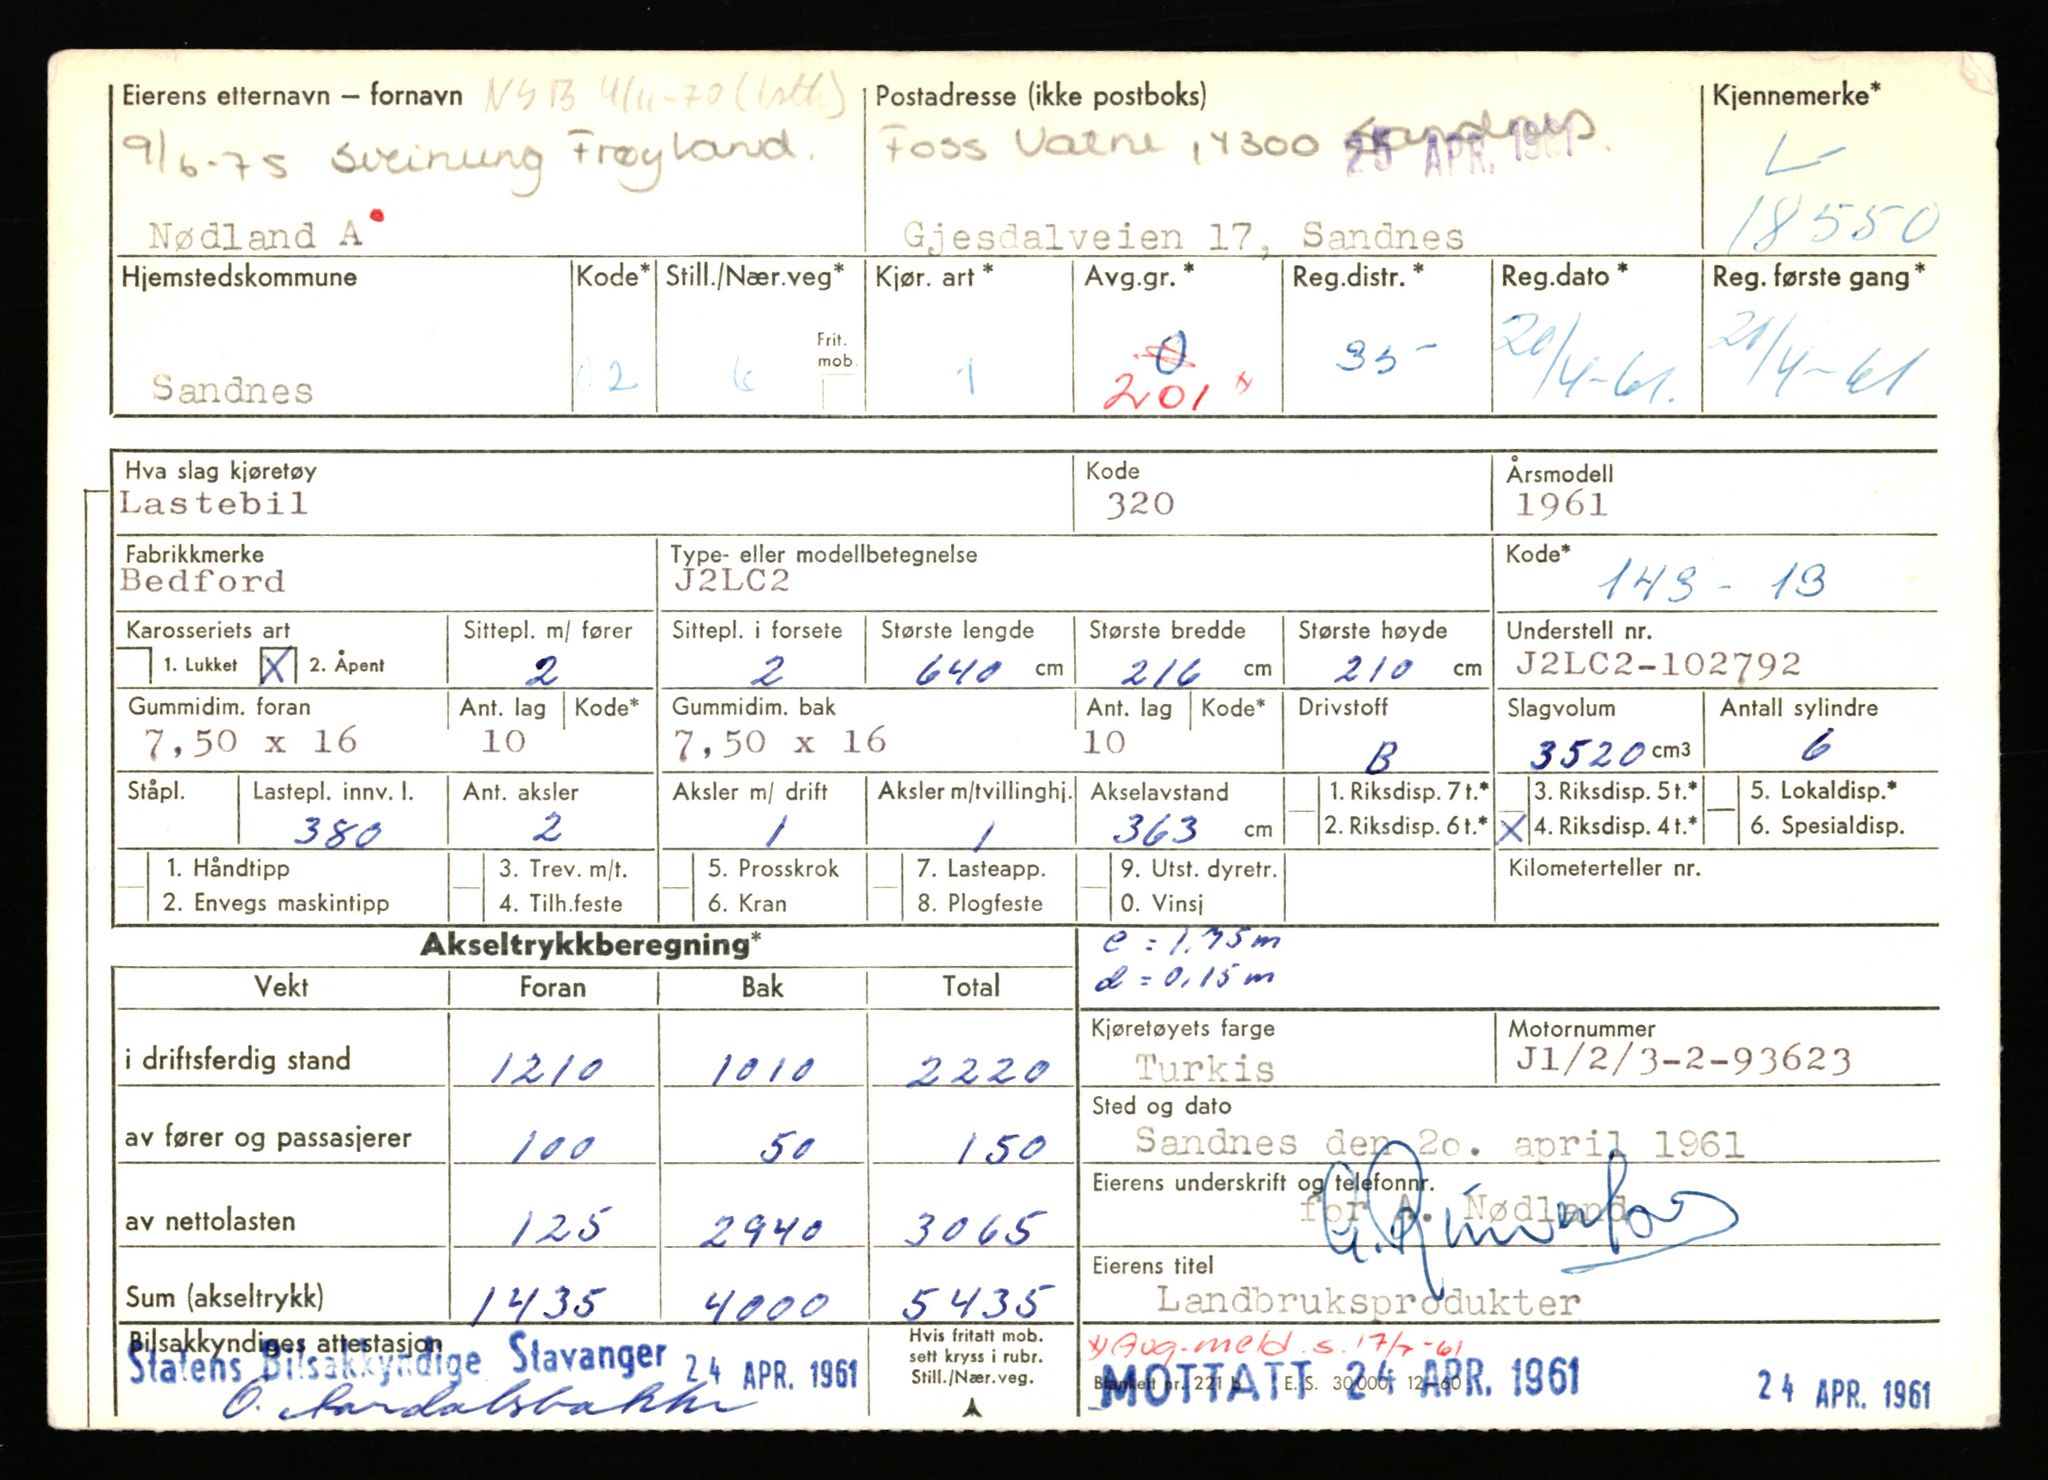 Eierens etternavn – fornavn NSB 4/11-70 Postadresse (ikke postboks) Kjennemerke*
9/6-75 Sveinung Frøyland. Foss Vatne, 4300 Sandnes.
25 APR. 1961
L-
18550
Nødland A Gjesdalveien 17, Sandnes
Hjemstedskommune Kode* Still./Nær.veg* Kjør. art* Avg.gr.* Reg.distr.* Reg.dato* Reg. første gang*
Frit. mob.
Sandnes 02 6 1 0 35- 20/4-61. 20/4-61
201 *
Hva slag kjøretøy Kode Årsmodell
Lastebil 320 1961
Fabrikkmerke Type- eller modellbetegnelse Kode*
Bedford J2LC2 143-13
Karosseriets art Sittepl. m/ fører Sittepl. i forsete Største lengde Største bredde Største høyde Understell nr.
1. Lukket X 2. Åpent 2 2 640 cm 216 cm 210 cm J2LC2-102792
Gummidim. foran Ant. lag Kode* Gummidim. bak Ant. lag Kode* Drivstoff Slagvolum Antall sylindre
7,50 x 16 10 7,50 x 16 10 B 3520 cm3 6
Ståpl. Lastepl. innv. l. Ant. aksler Aksler m/ drift Aksler m/tvillinghj. Akselavstand 1. Riksdisp. 7 t.* 3. Riksdisp. 5 t.* 5. Lokaldisp.*
380 2 1 1 363 cm 2. Riksdisp. 6 t.* X 4. Riksdisp. 4 t.* 6. Spesialdisp.
1. Håndtipp 3. Trev. m/t. 5. Prosskrok 7. Lasteapp. 9. Utst. dyretr. Kilometerteller nr.
2. Envegs maskintipp 4. Tilh.feste 6. Kran 8. Plogfeste 0. Vinsj
Akseltrykkberegning* e = 1,75 m
d = 0,15 m
Vekt Foran Bak Total
Kjøretøyets farge Motornummer
i driftsferdig stand 1210 1010 2220 Turkis J1/2/3-2-93623
Sted og dato
av fører og passasjerer 100 50 150 Sandnes den 20. april 1961
Eierens underskrift og telefonnr.
av nettolasten 125 2940 3065 for A. Nødland
Eierens titel
Sum (akseltrykk) 1435 4000 5435 Landbruksprodukter
Bilsakkyndiges attestasjon Hvis fritatt mob. sett kryss i rubr. Still./Nær.veg. *) Avg.meld. s. 17/7-61
Statens Bilsakkyndige Stavanger 24 APR. 1961 MOTTATT 24 APR. 1961 24 APR. 1961
Blankett nr. 221 b E. S. 30000 12-60